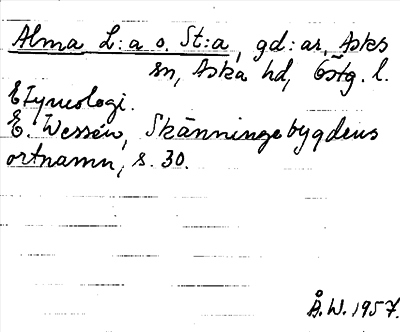 Alma L:a o. St:a, gd:ar, Asks
sn, Aska hd, Östg. l.
Etymologi.
E. Wessén, Skänningebygdens
ortnamn, s. 30.
Å.W. 1957.